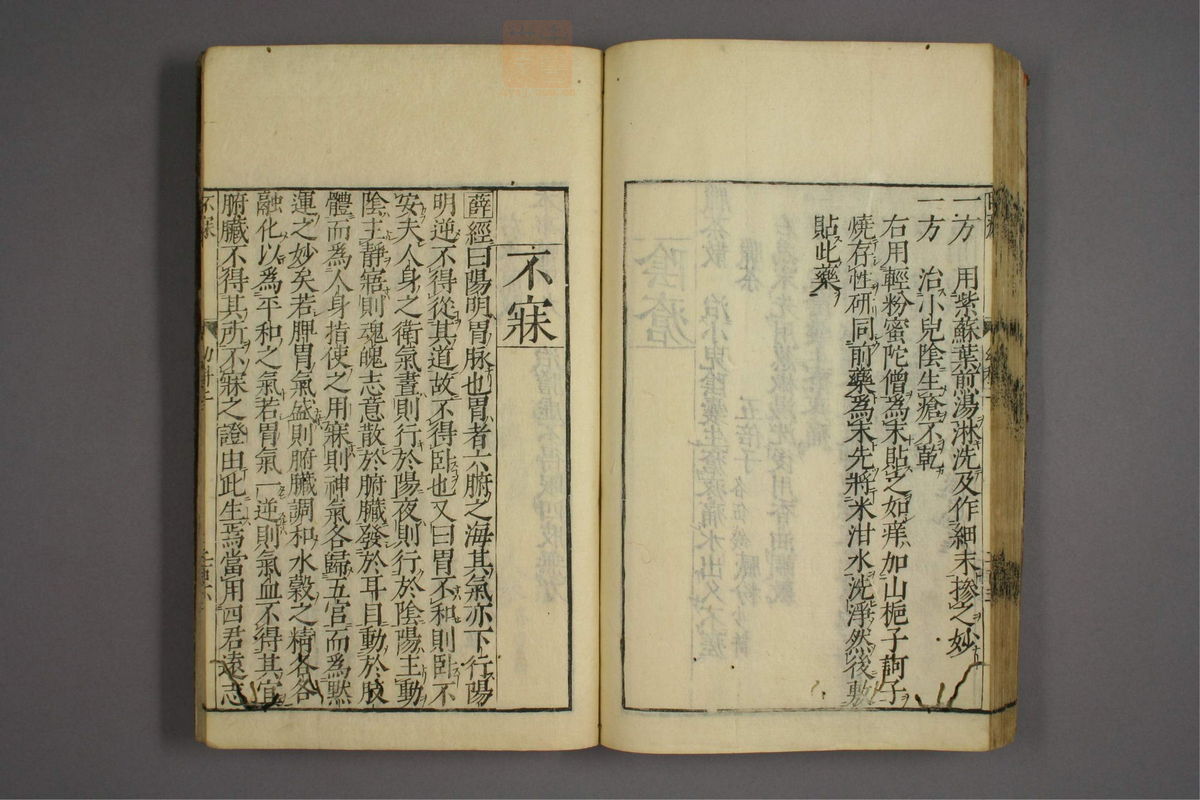 一方 用紫蘇葉煎湯淋洗及作細末摻之妙
一方 治小兒陰生瘡不乾
右用輕粉蜜陀僧爲末貼之如痒加山梔子訶子
燒存性研同前藥爲末先將米泔水洗淨然後敷
貼此藥
不寐
薛經曰陽明胃脉也胃者六腑之海其氣亦下行陽
明逆不得從其道故不得臥也又曰胃不和則臥不
安夫人身之衛氣晝則行於陽夜則行於陰陽主動
陰主靜寤則魂魄志意散於腑臟發於耳目動於肢
體而爲人身指使之用寐則神氣各歸五官而爲黙
運之妙矣若脾胃氣盛則腑臟調和水穀之精各各
融化以爲平和之氣若胃氣一逆則氣血不得其宜
腑臟不得其所不寐之證由此生焉當用四君遠志
不寐